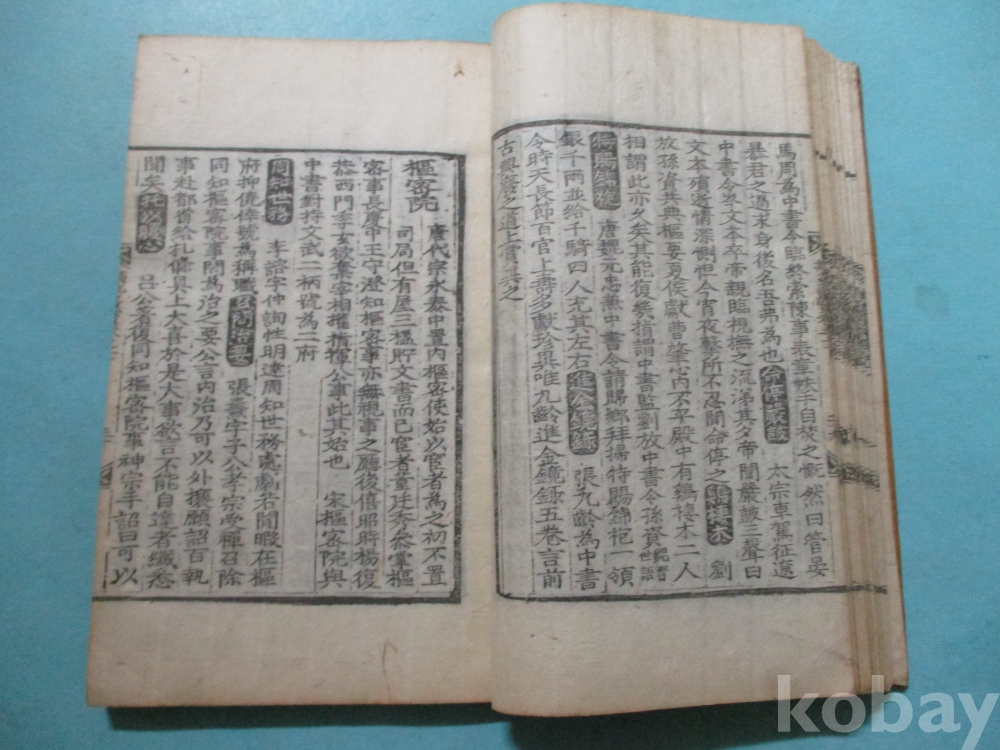 馬周爲中書令臨終索陳事表草帙手自焚之慨然曰管晏
暴君之過求身後名吾弗爲也 命停嚴鼓 太宗車駕征遼
中書令岑文本卒帝親臨視撫之流涕其夕帝聞嚴鼓三聲曰
文本殞逝情深惻怛今宵夜擊所不忍聞命停之 雞棲木 劉
放孫資共典樞要夏侯獻曹肇心內不平殿中有鷄棲木二人
相謂此亦久矣其能復幾指謂中書監劉放中書令孫資 世語
特賜錦袍 唐魏元忠兼中書令請歸鄉拜掃特賜錦袍一領
銀千兩並給千騎四人充其左右 進金鏡錄 張九齡爲中書
令時天長節百官上壽多獻珍異唯九齡進金鏡錄五卷言前
古興廢之道上賞異之
樞密院 唐代宗永泰中置內樞密使始以宦者爲之初不置
司局但有屋三楹貯文書而已宦者董廷秀參掌樞
密事長慶中王守澄知樞密事亦無視事之廳後僖昭時楊復
恭西門季玄欲奪宰相權指揮公事此其始也 宋樞密院與
中書對持文武二柄號爲二府
周知世務 李諮字仲詢性明達周知世務處劇若閒暇在樞
府抑僥倖號爲稱職 張燾字子公孝宗受禪召除
同知樞密院事問爲治之要公言內治乃可以外攘願詔百執
事赴都首給札條具上大喜於是大事欲言不能自達者纖悉
聞矣 呂公著後同知樞密院事神宗手詔曰可以
kobay